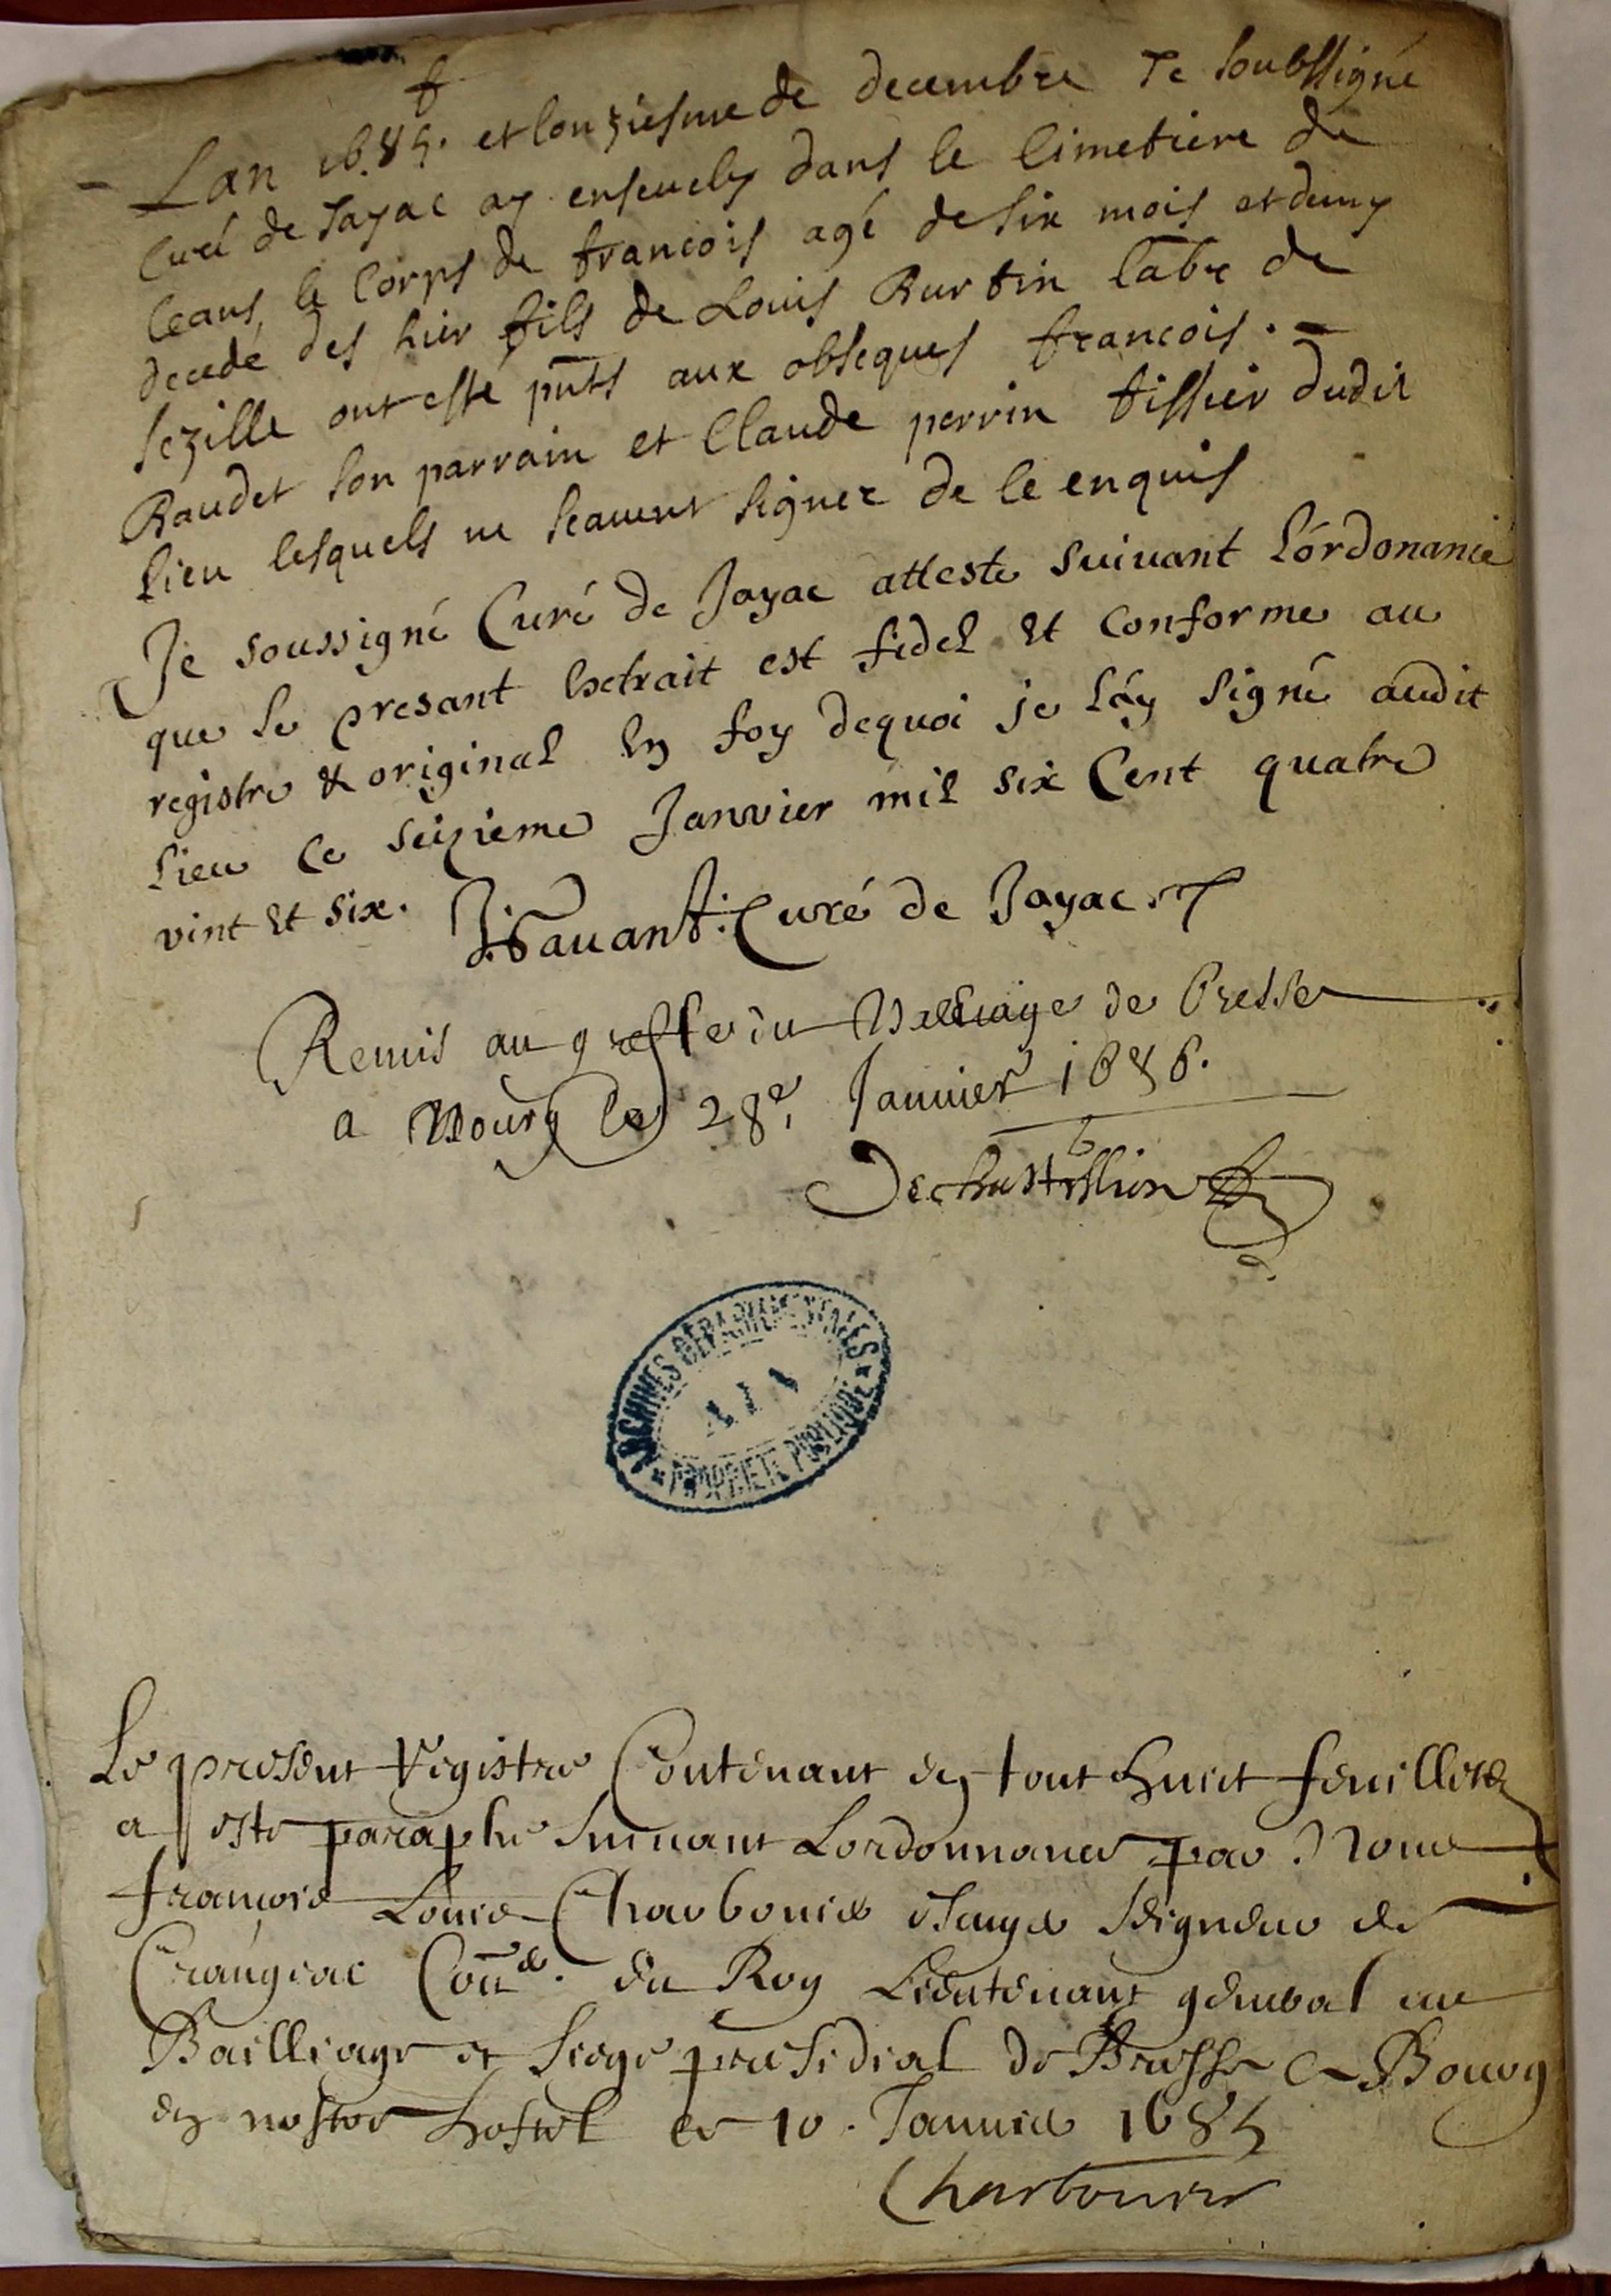 †
Lan 1685. et lonziesme de decembre Je soubssigné
curé de Jayac ay enseuely dans le cimetiere de
ceans le corps de francois agé de six mois et demy
decedé des hier fils de Louis Burtin labr de
sezille ont esté pnts aux obseques francois
Baudet son parrain et Claude perrin tissier dudit
lieu lesquels ne scauent signer de ce enquis
Je soussigné Curé de Jayac atteste suivant l'ordonance
que le presant extrait est fidel et conforme au
registre & original en foy dequoi je l'ay signé audit
lieu ce seizieme Janvier mil six Cent quatre
vint et six. Curé de Jayac
Remis au greffe du Balliage de Bresse
a Bourg le 28e Januier 1686.
Dechastillion
ARCHIVES DÉPARTEMENTALES
AIN
PROPRIÉTÉ PUBLIQUE
Le present registre Contenant en tout huict feuillets
a esté paraphé suiuant Lordonnance par Nous
francois Louis Charbonier Seigneur de
Crangeac Coner. du Roy Lieutenant general au
Bailliage et siege presidial de Bresse a Bourg
en nostre hostel ce 10. Januier 1685
Charbonier